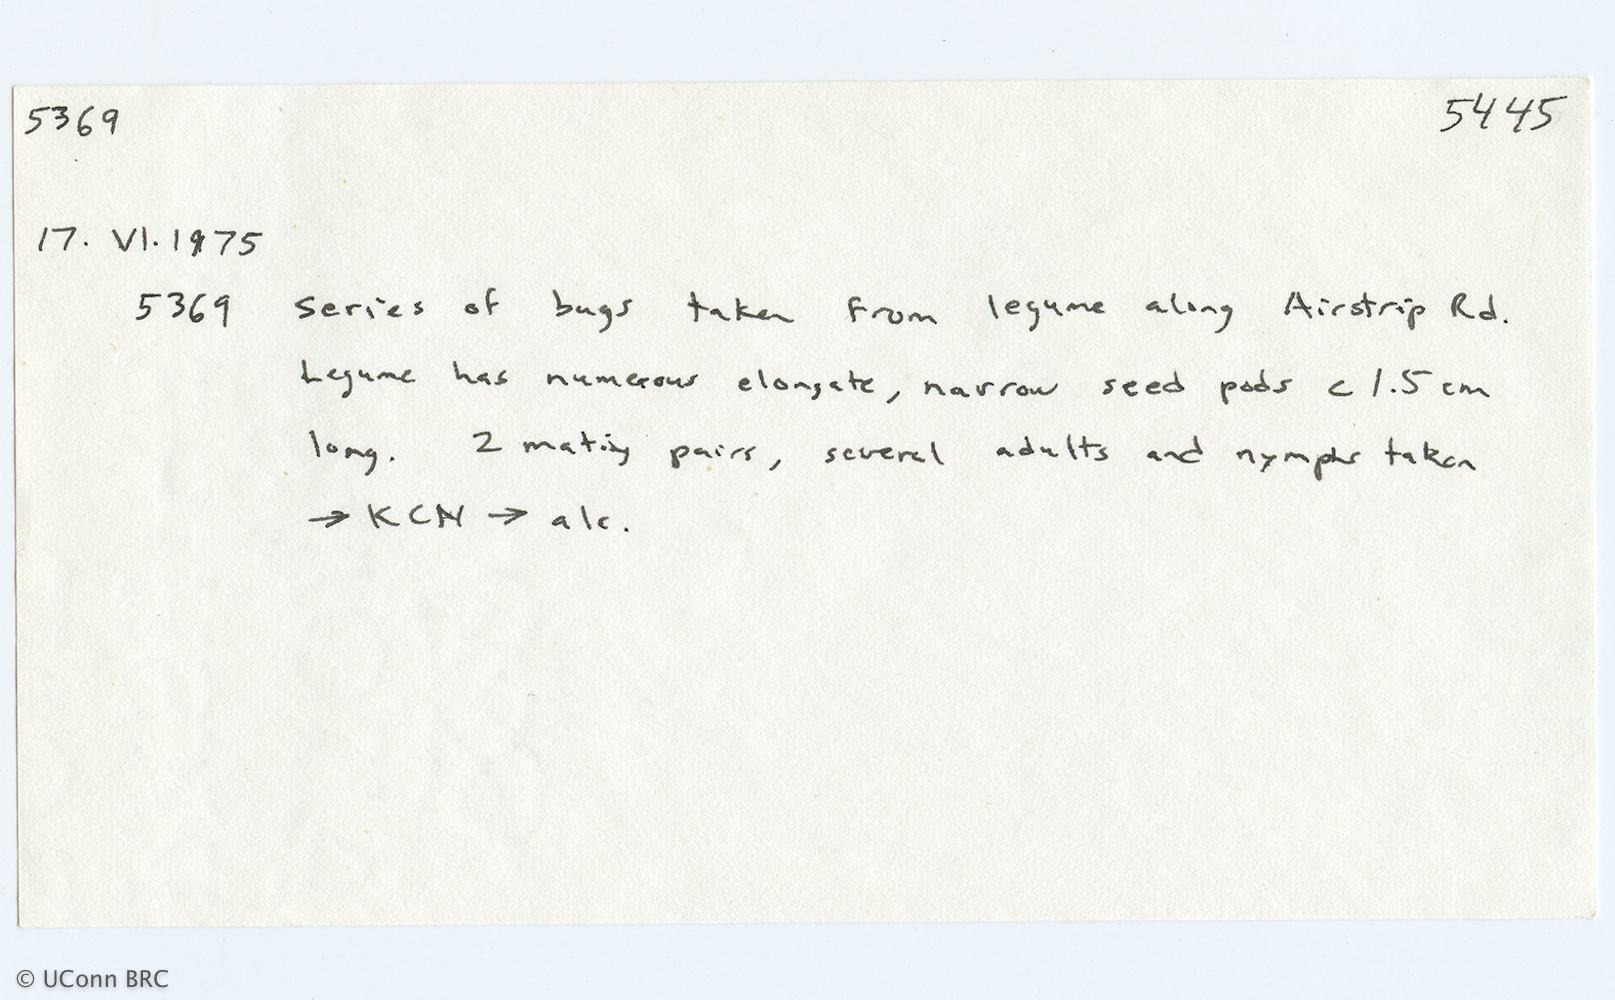 5369 5445
17. VI. 1975
5369 Series of bugs taken from legume along Airstrip Rd.
Legume has numerous elongate, narrow seed pods c 1.5 cm
long. 2 mating pairs, several adults and nymphs taken
→ KCN → alc.
© UConn BRC